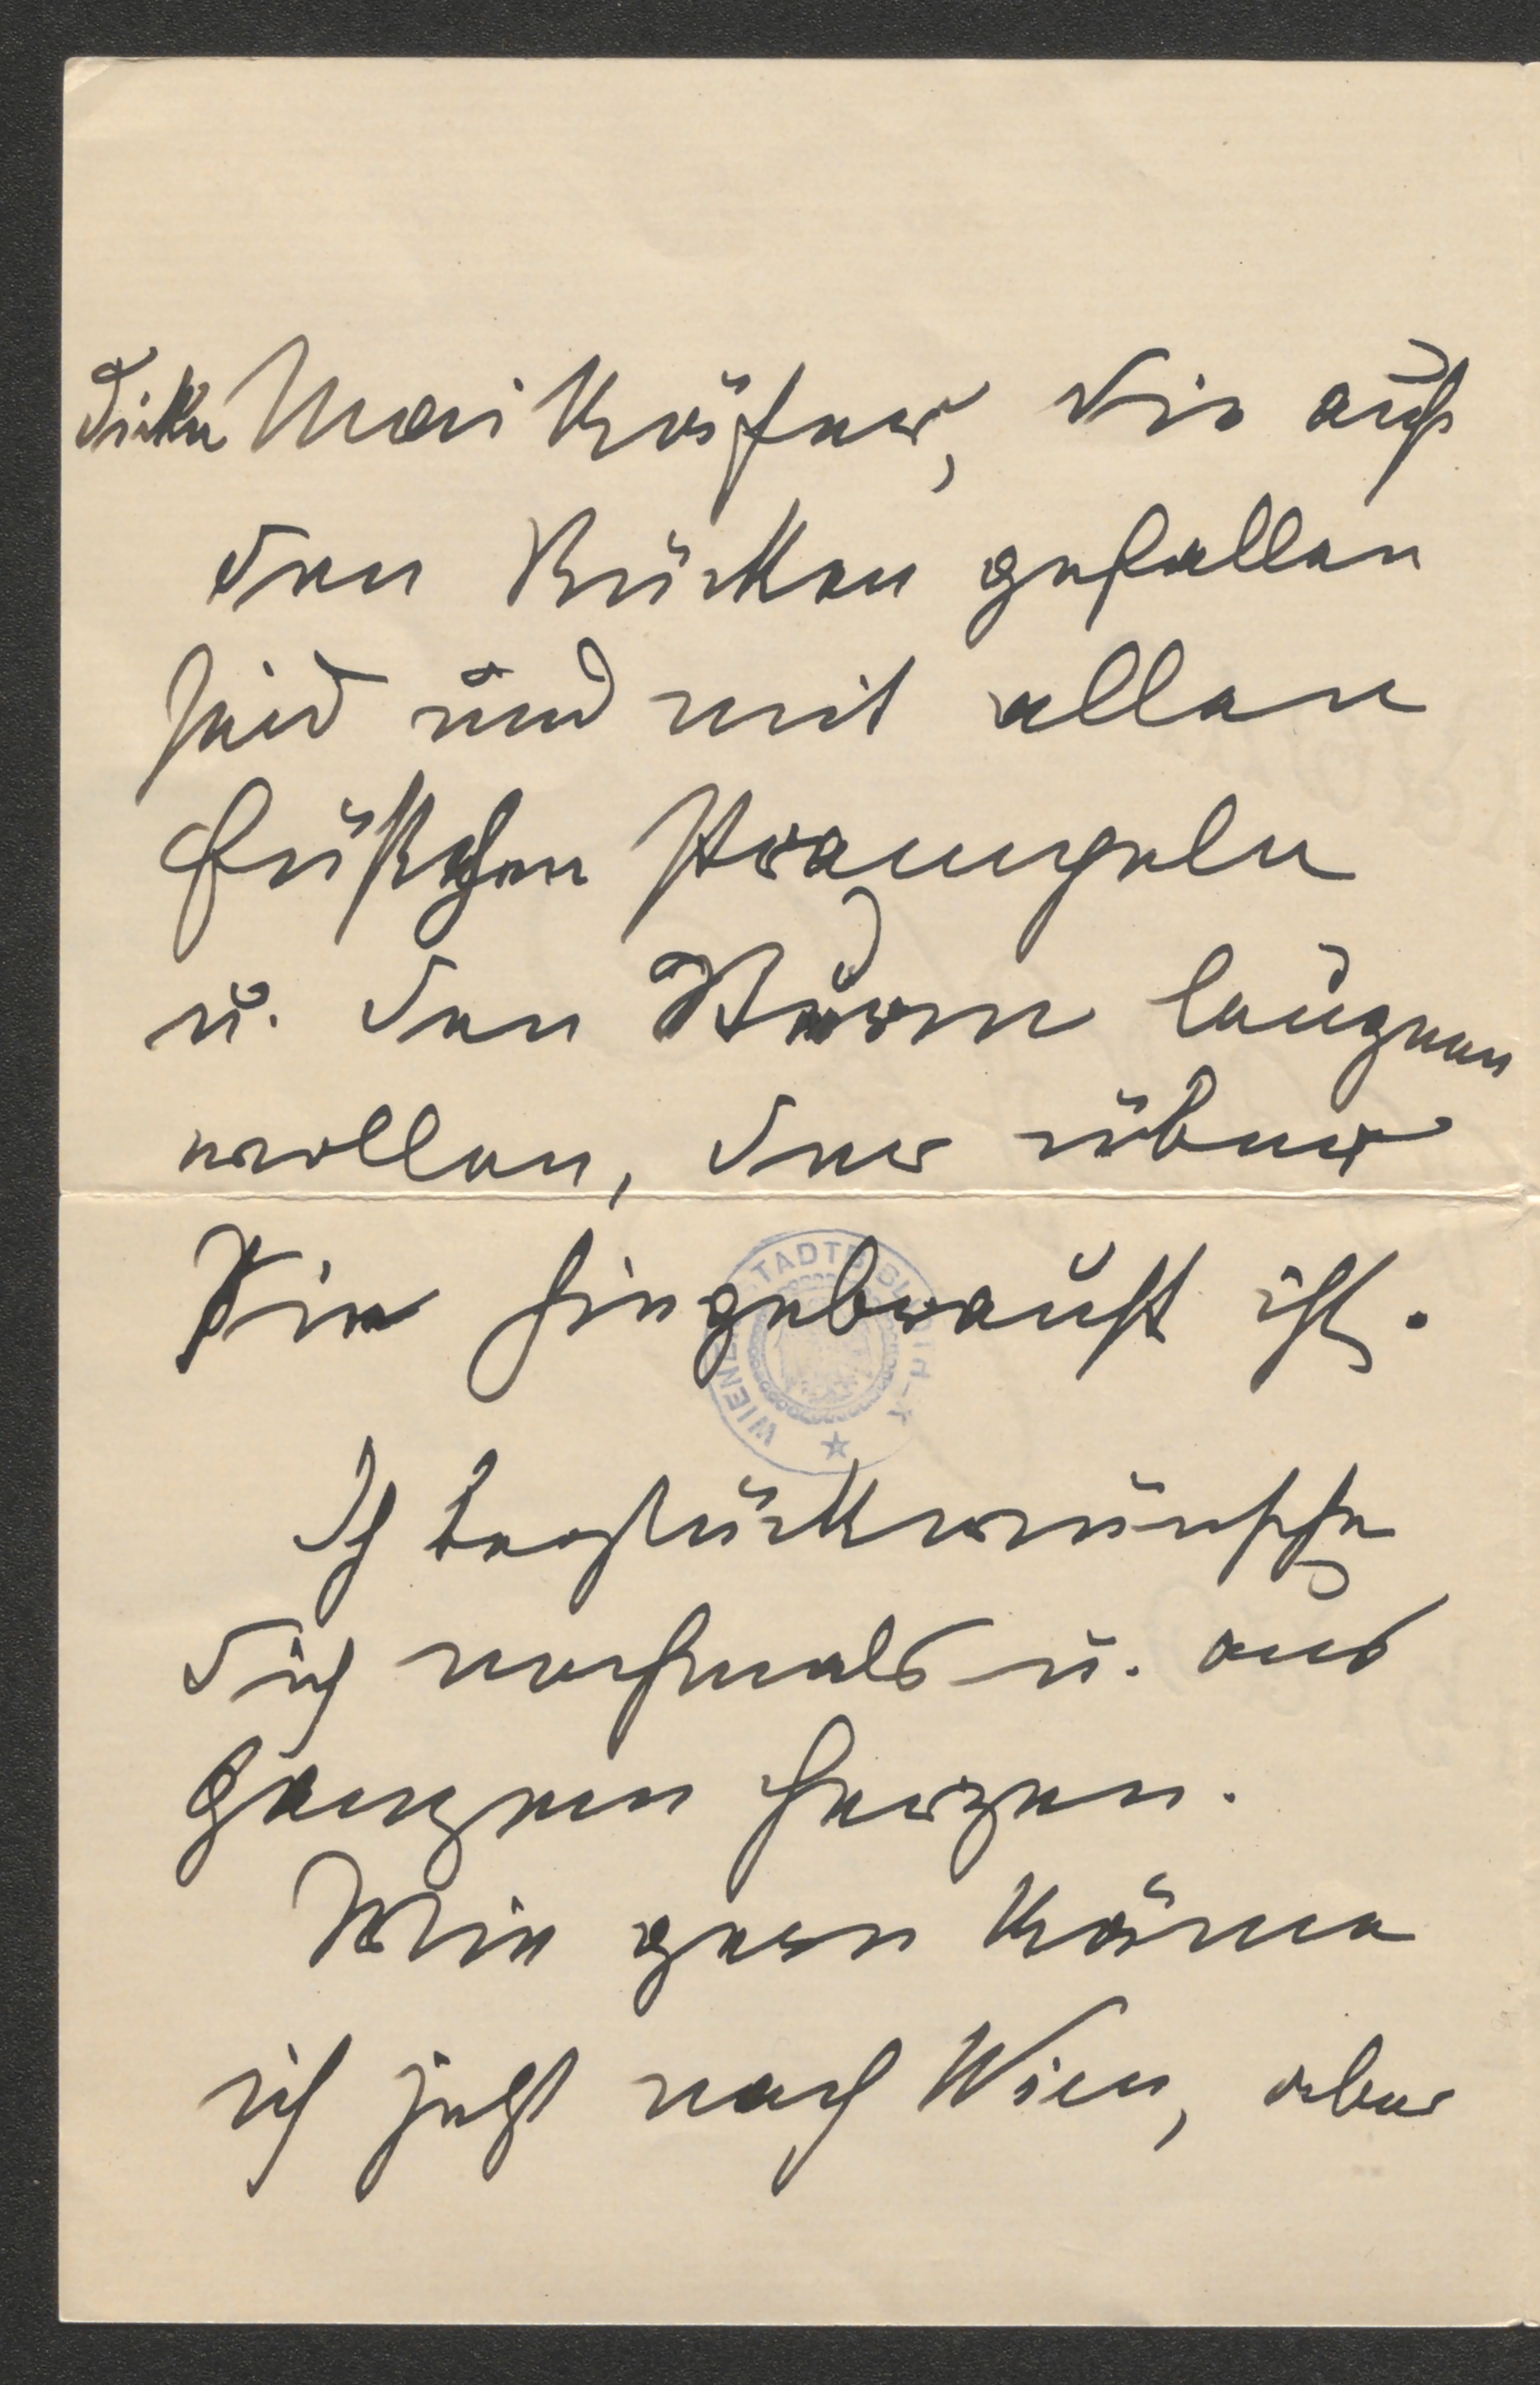 dicke Maikäfer, die auf
den Rücken gefallen
sind und mit allen
Füßchen strampeln
u. den Sturm leugnen
wollen, der über
sie hingebraust ist.
WIENER STADTBIBLIOTHEK
Ich beglückwünsche
dich nochmals u. aus
ganzem Herzen.
Wie gern käme
ich jetzt nach Wien, aber